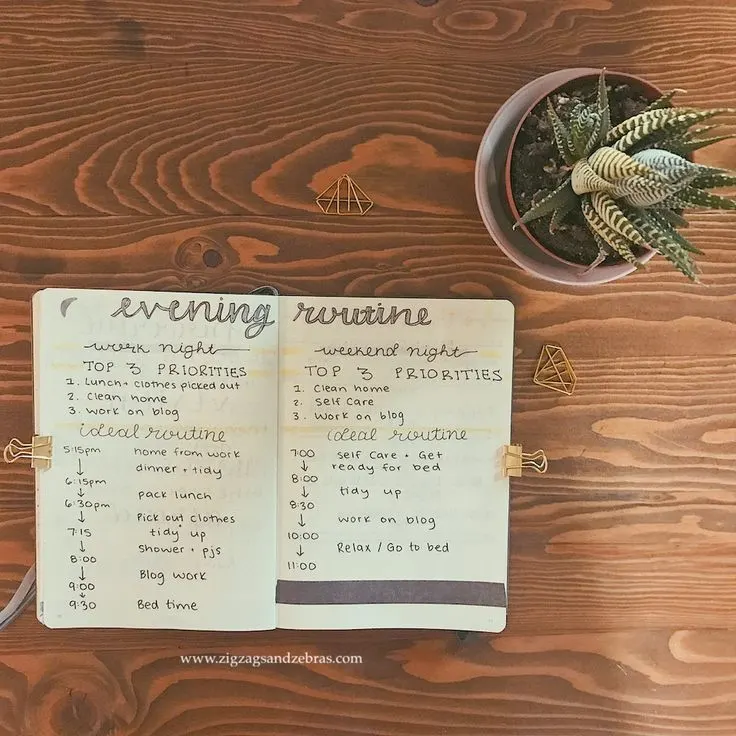 evening routine
work night
TOP 3 PRIORITIES
1. Lunch + clothes picked out
2. Clean home
3. work on blog
ideal routine
5:15pm home from work
↓ dinner + tidy
6:15pm
↓ pack lunch
6:30pm
↓ Pick out clothes
7:15 tidy up
↓ shower + pjs
8:00
↓ Blog work
9:00
↓
9:30 Bed time
weekend night
TOP 3 PRIORITIES
1. Clean home
2. Self Care
3. Work on blog
ideal routine
7:00 self care + Get
↓ ready for bed
8:00
↓ tidy up
8:30
↓ work on blog
10:00
↓ Relax / Go to bed
11:00
www.zigzagsandzebras.com